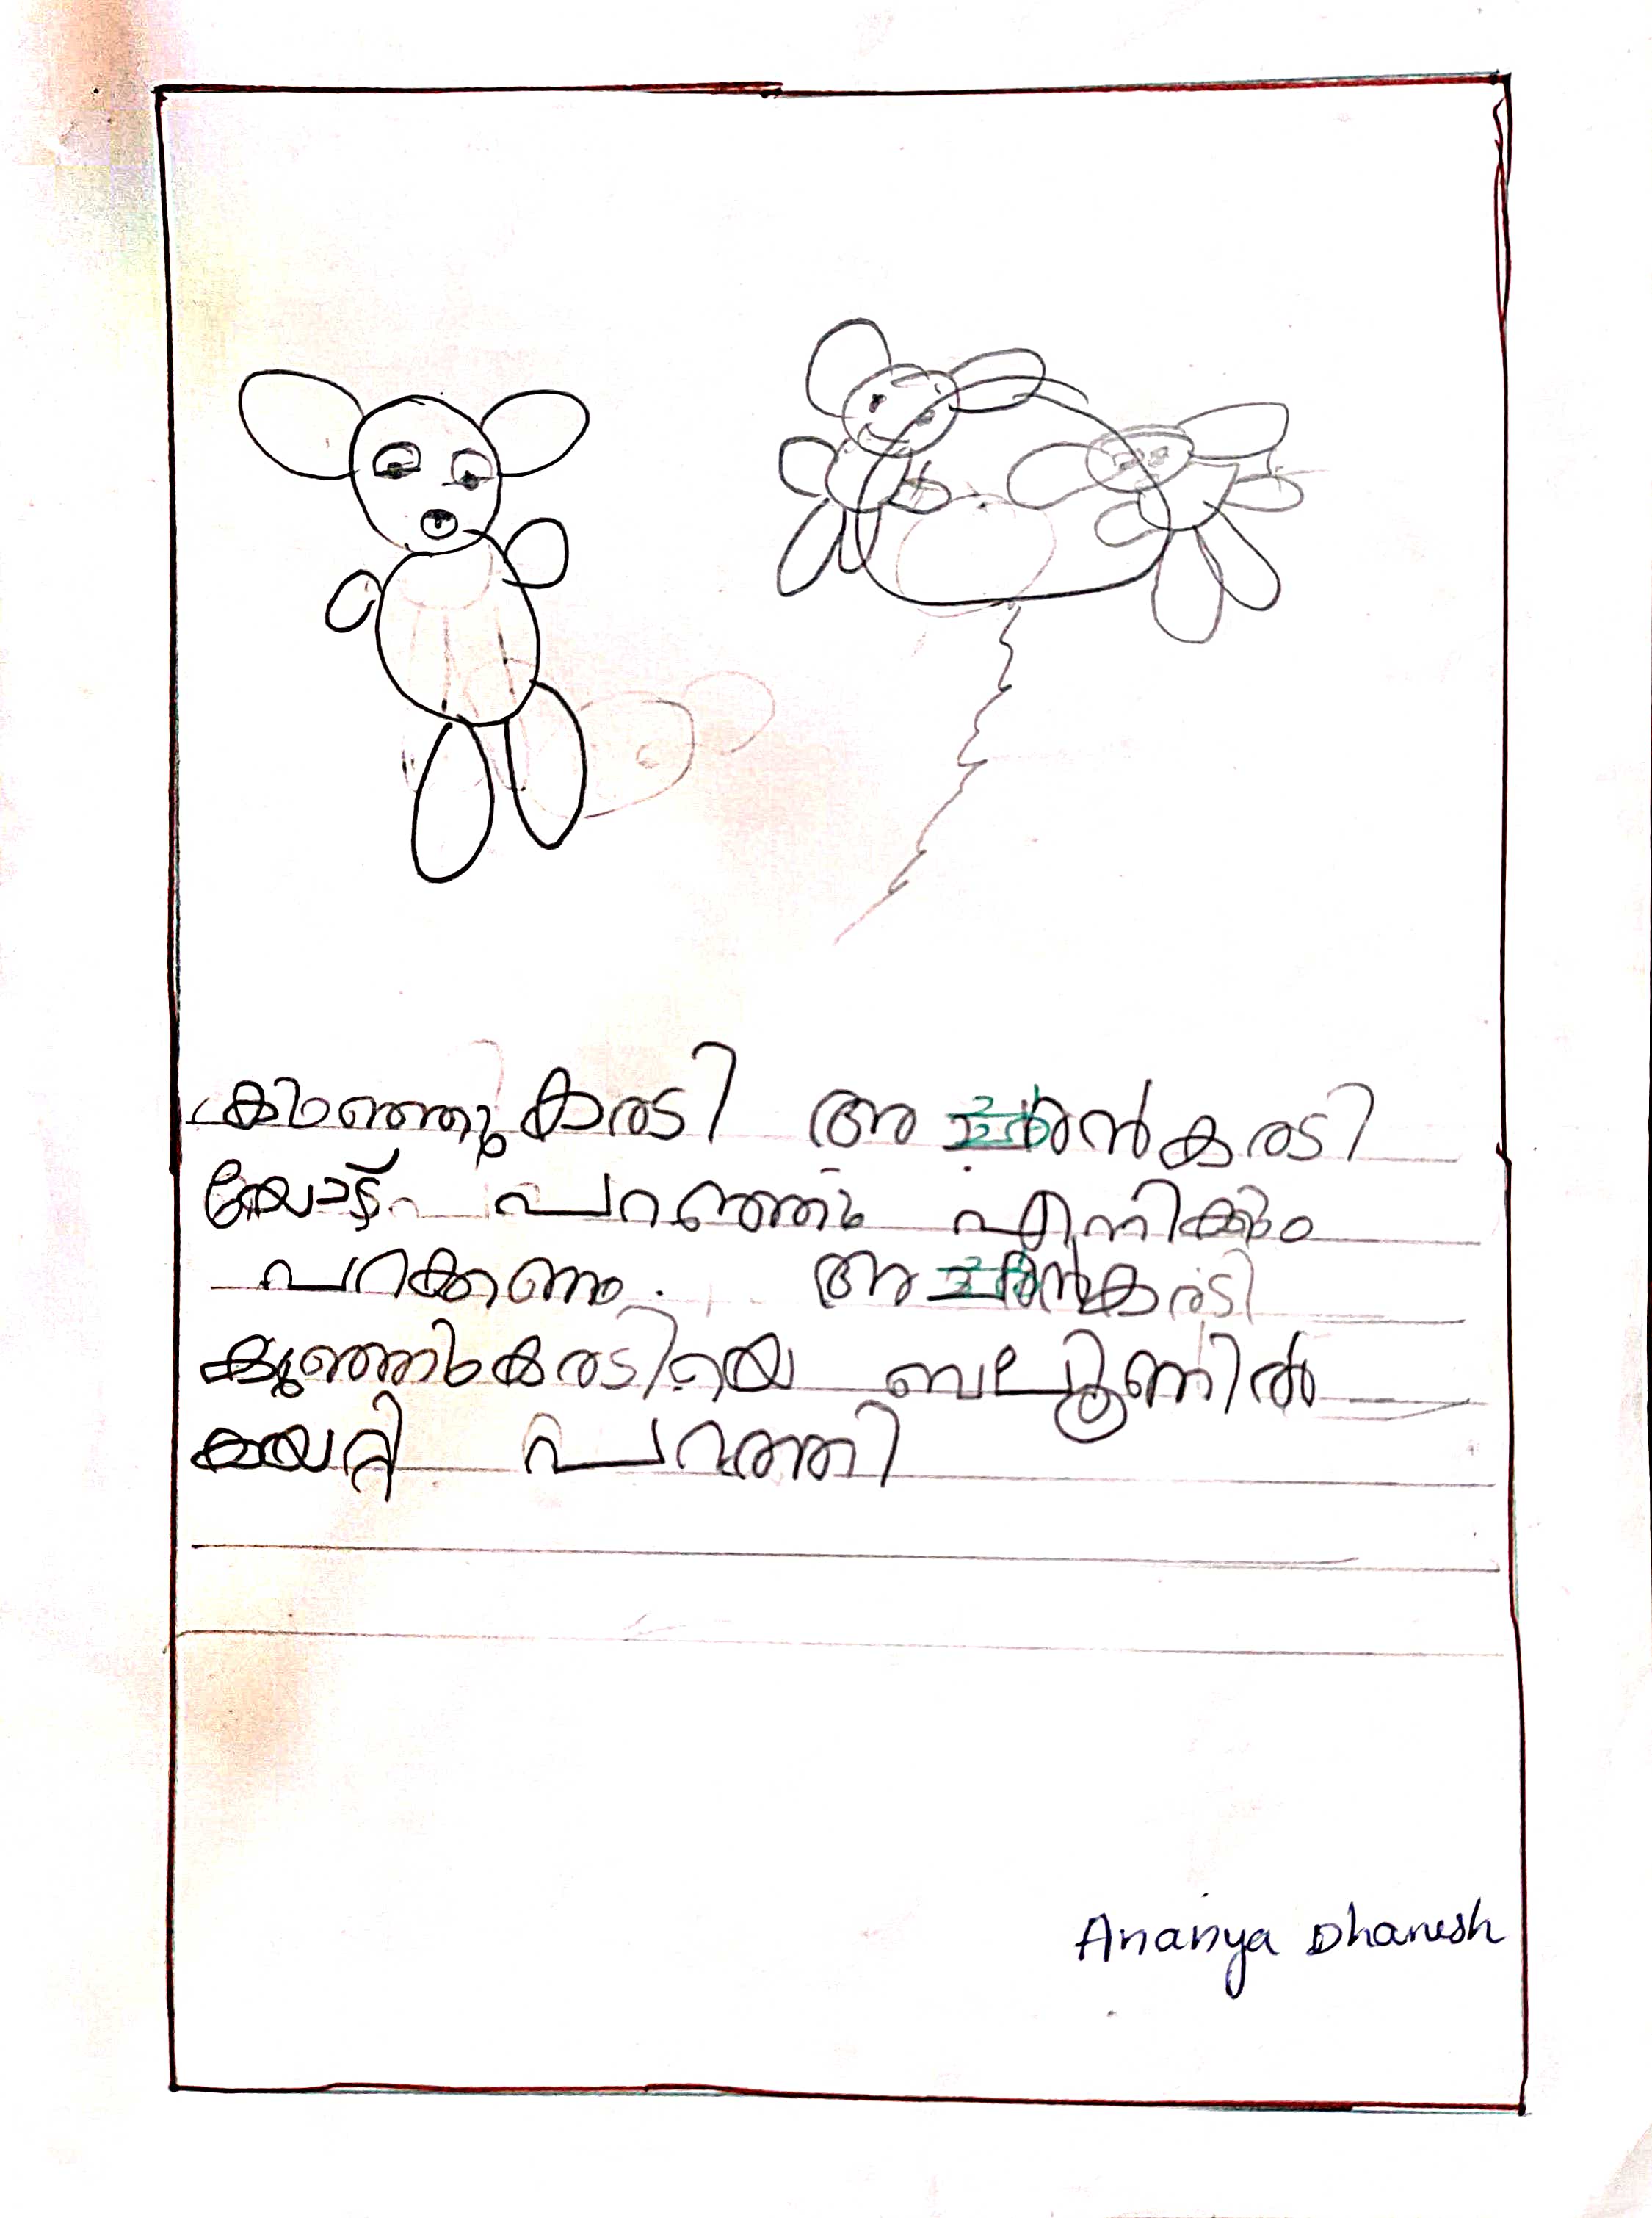 കുഞ്ഞുകരടി അച്ഛൻകരടി
യോട് പറഞ്ഞു എനിക്കും
പറക്കണം. അച്ഛൻകരടി
കുഞ്ഞുകരടിയെ ബലൂണിൽ
കയറ്റി പറത്തി
Ananya Dhanesh